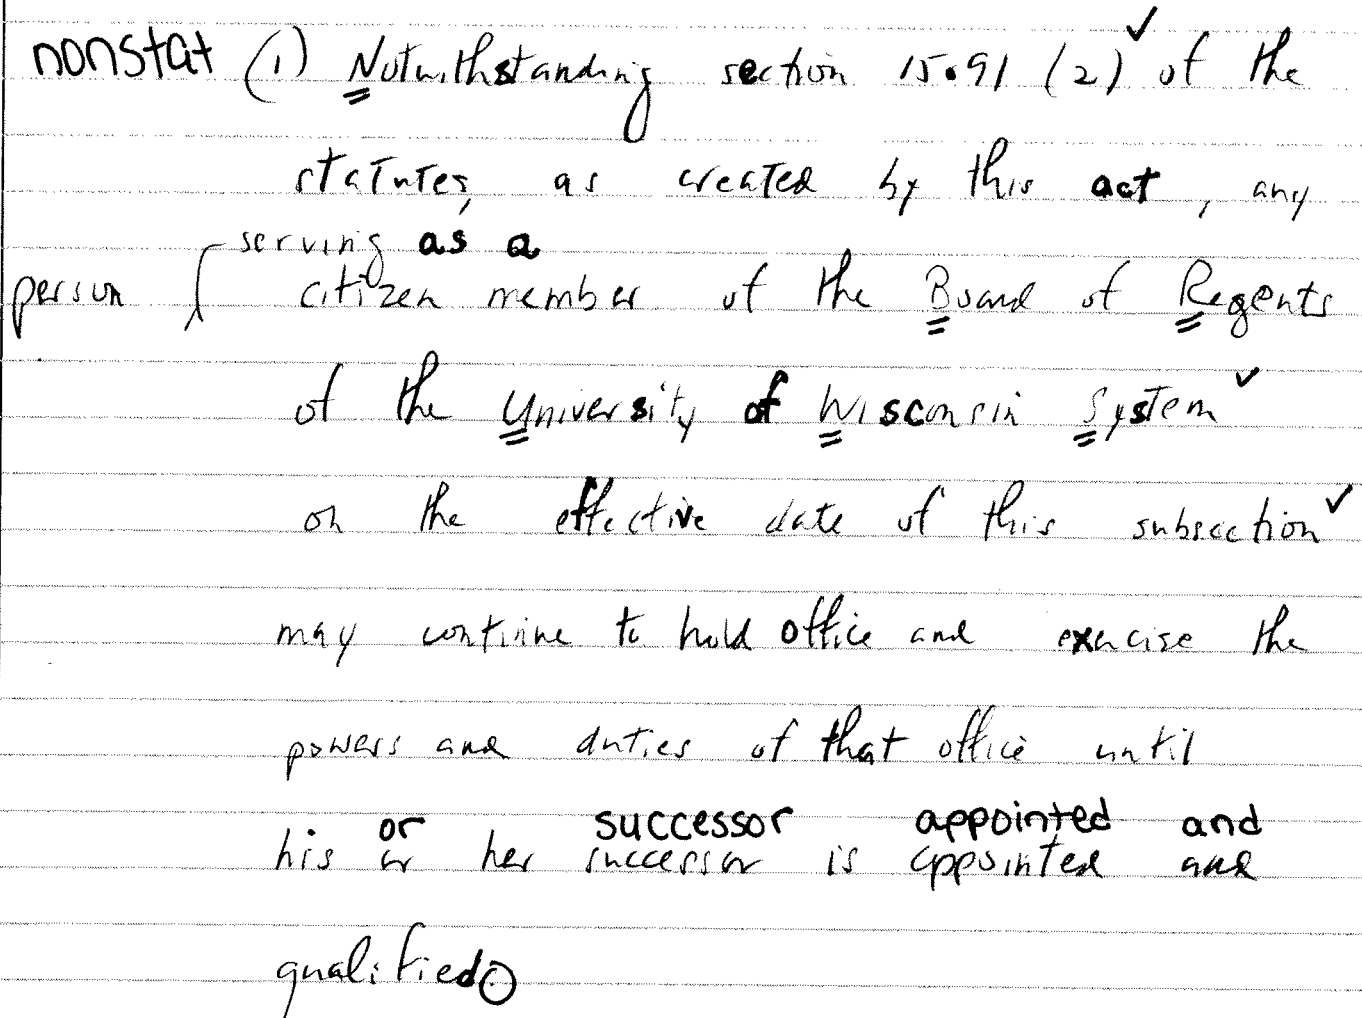 nonstat (1) Notwithstanding section 15.91 (2) of the
statutes, as created by this act, any
serving as a
person citizen member of the Board of Regents
of the University of Wisconsin System
on the effective date of this subsection
may continue to hold office and exercise the
powers and duties of that office until
or successor appointed and
his or her successor is appointed and
qualified.